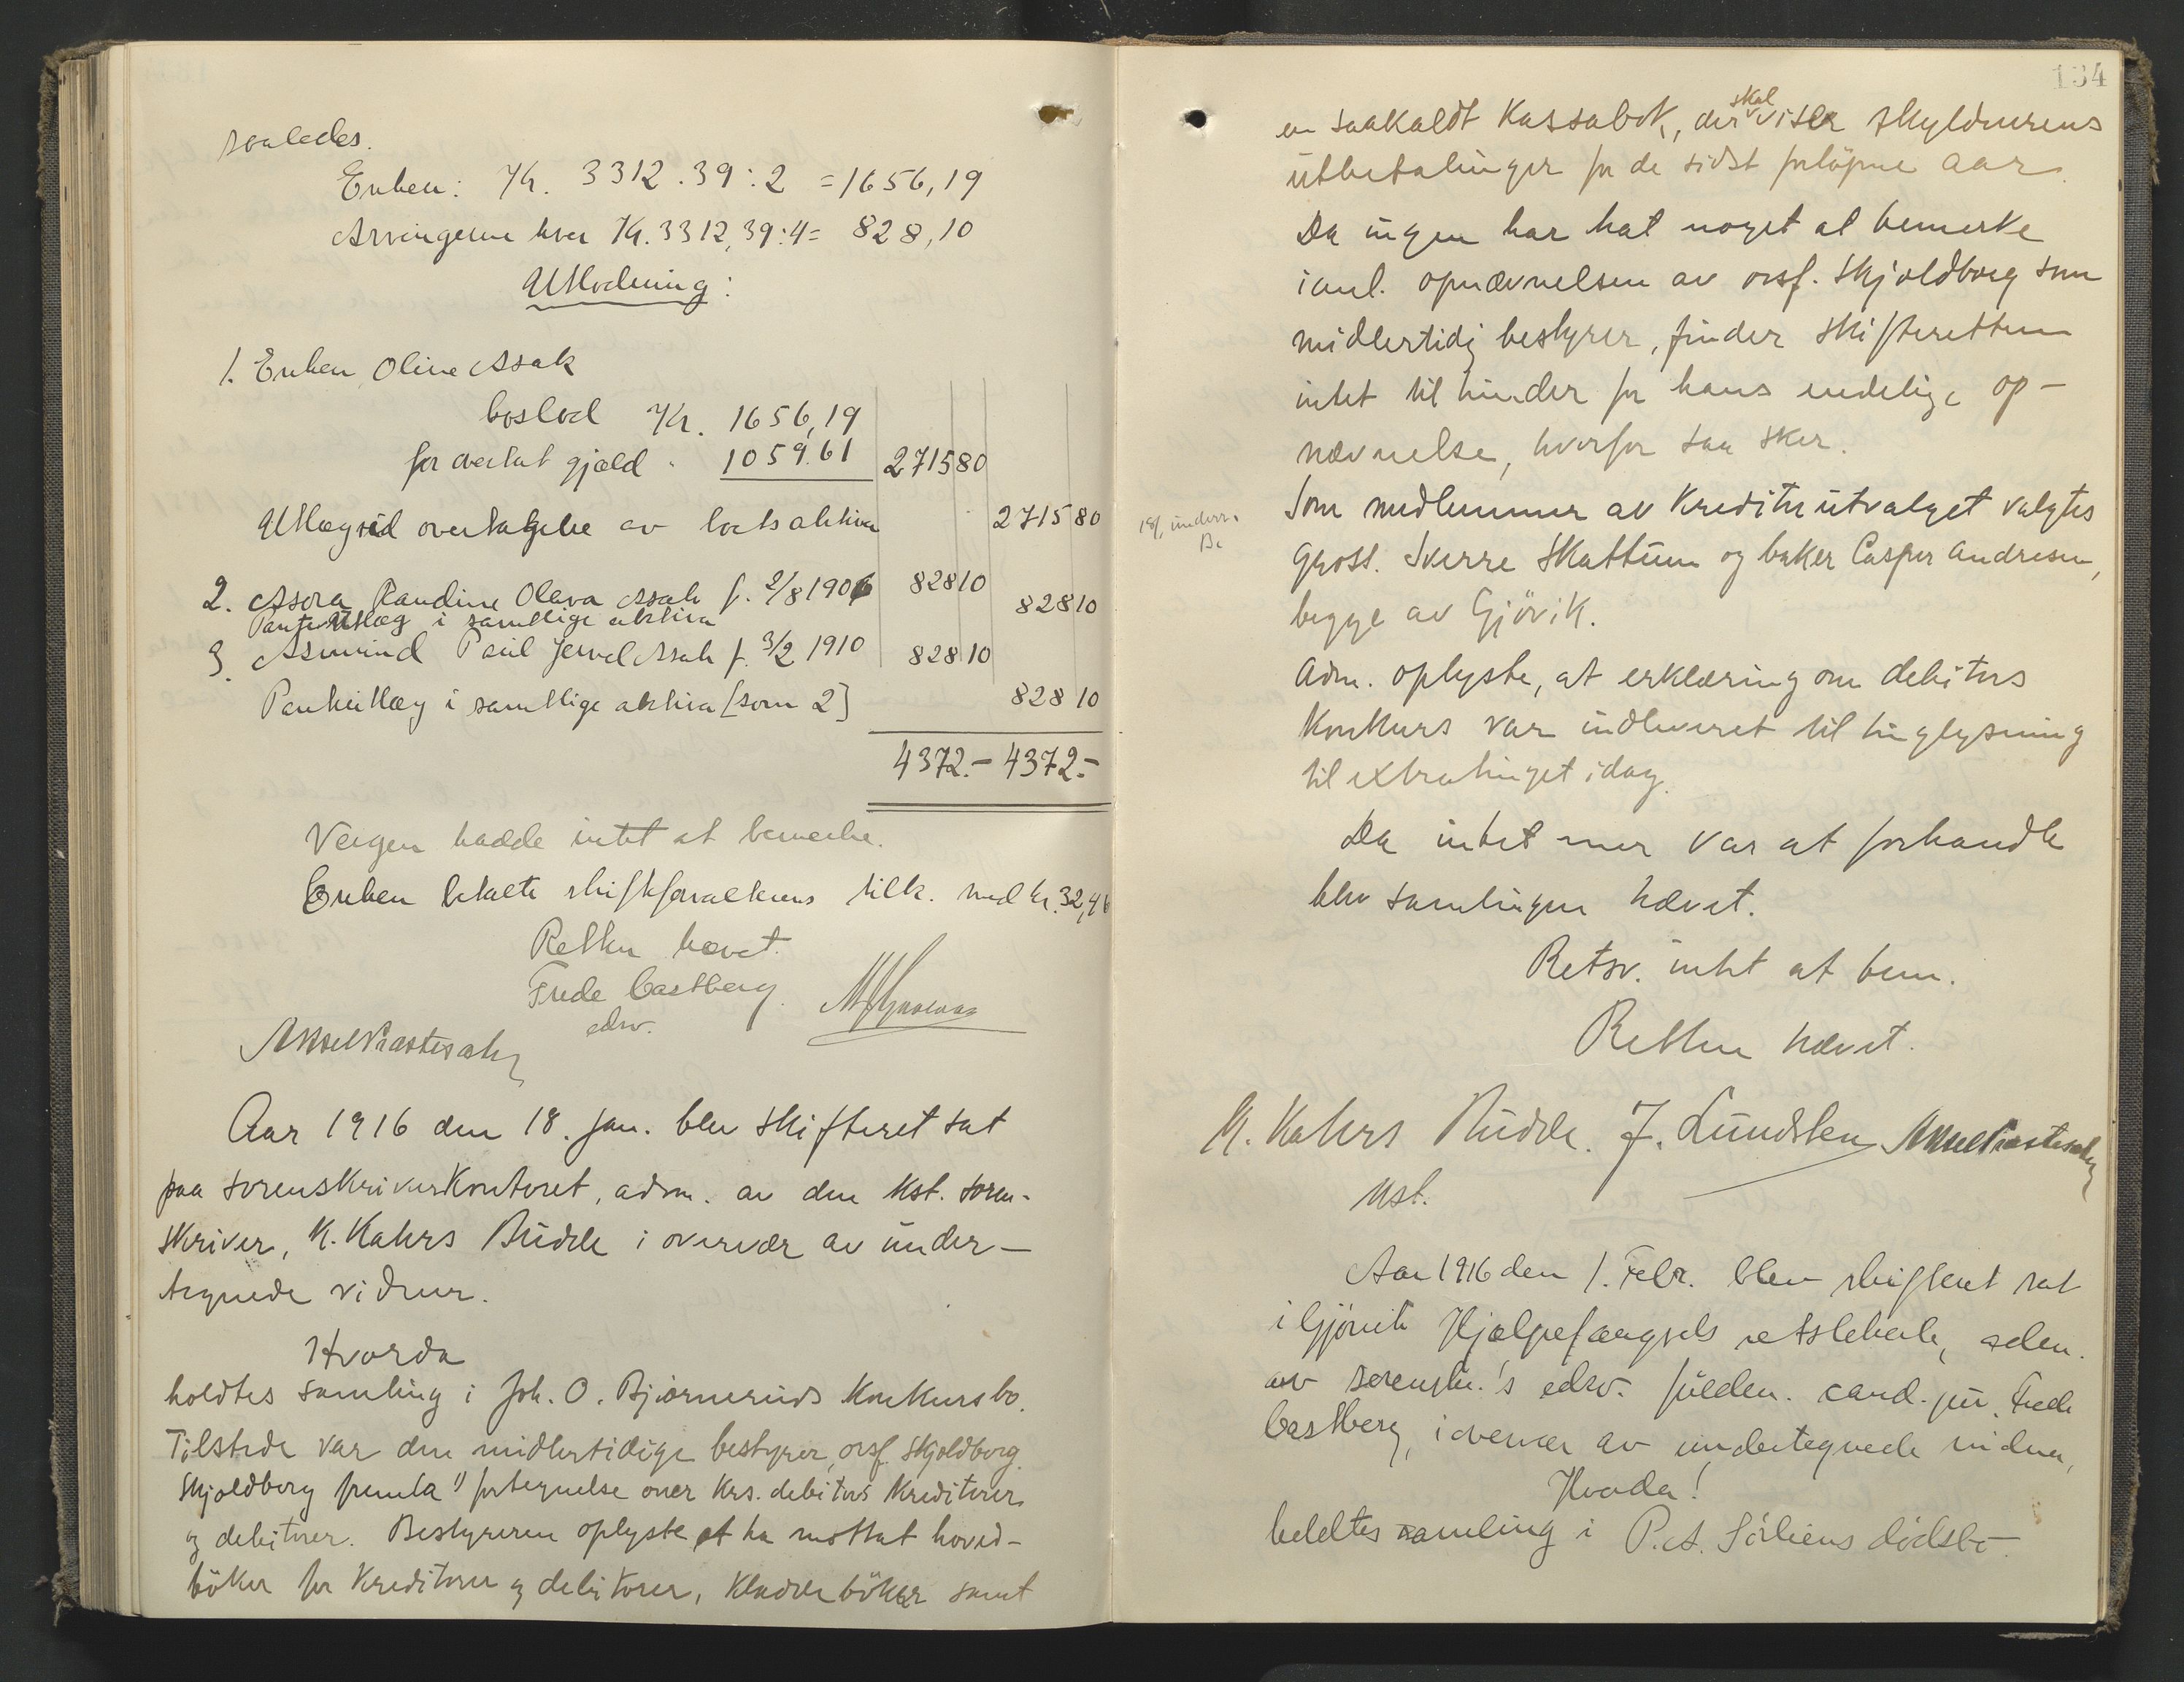 saaledes.
Enken: Kr. 3312.39:2 = 1656,19
Arvingerne hver Kr. 3312,39:4= 828,10
Utlodning:
1. Enken Oline Assak
boslod Kr. 1656,19
for overtat gjæld " 1059.61 2715 80
Utlægsed overtagelse av boets aktiva 2715 80
2. Asora Randine Olava Assak f. 2/8 1906 828 10
Panteutlæg i samtlige aktiva 828 10
3. Asmund Paul Jervel Assak f. 3/2 1910 828 10
Panteutlæg i samtlige aktiva [som 2] 828 10
4372.- 4372.-
Vergen hadde intet at bemerke.
Enken betalte skifteforvalterens tilk. med kr. 32,46
Retten hævet.
Frede Castberg.
edsv.
Aar 1916 den 18. jan. blev skifteret sat
paa sorenskriverkontoret, adm. av den kst. soren-
skriver, K. Kahrs Budde i overvær av under-
tegnede vidner.
Hvorda
holdtes samling i Joh. O. Bjørneruds konkursbo.
Tilstede var den midlertidige bestyrer, orsf. Skjoldborg.
Skjoldborg fremla 1) fortegnelse over krs. debitors kreditorer
og debitorer. Bestyreren oplyste at ha mottat hoved-
bøker for kreditorer og debitorer, kladdebøker samt
134
en saakaldt kassabok, der skal vise skyldnerens
utbetalinger for de sidst forløpne aar.
Da ingen har hat noget at bemerke
i anl. opnævnelsen av orsf. Skjoldborg som
midlertidig bestyrer, finder skifteretten
intet til hinder for hans endelige op-
nævnelse, hvorfor saa sker.
18/1 underr.
Som medlemmer av kreditorutvalget valgtes
gross. Sverre Skattum og baker Casper Andresen,
begge av Gjøvik.
Adm. oplyste, at erklæring om debitors
konkurs var indleveret til tinglysning
til extratinget idag.
Da intet mer var at forhandle
blev samlingen hævet.
Retsv. intet at bem.
Retten hævet.
K. Kahrs Budde. J. Lundsten
kst.
Aar 1916 den 1. Febr. blev skifteret sat
i Gjøvik Hjælpefængsels retslokale, adm.
av sorenskr.'s edsv. fuldm. cand. jur. Frede
Castberg, i overvær av undertegnede vidner,
Hvorda!
holdtes samling i P. A. Sørliens dødsbo.